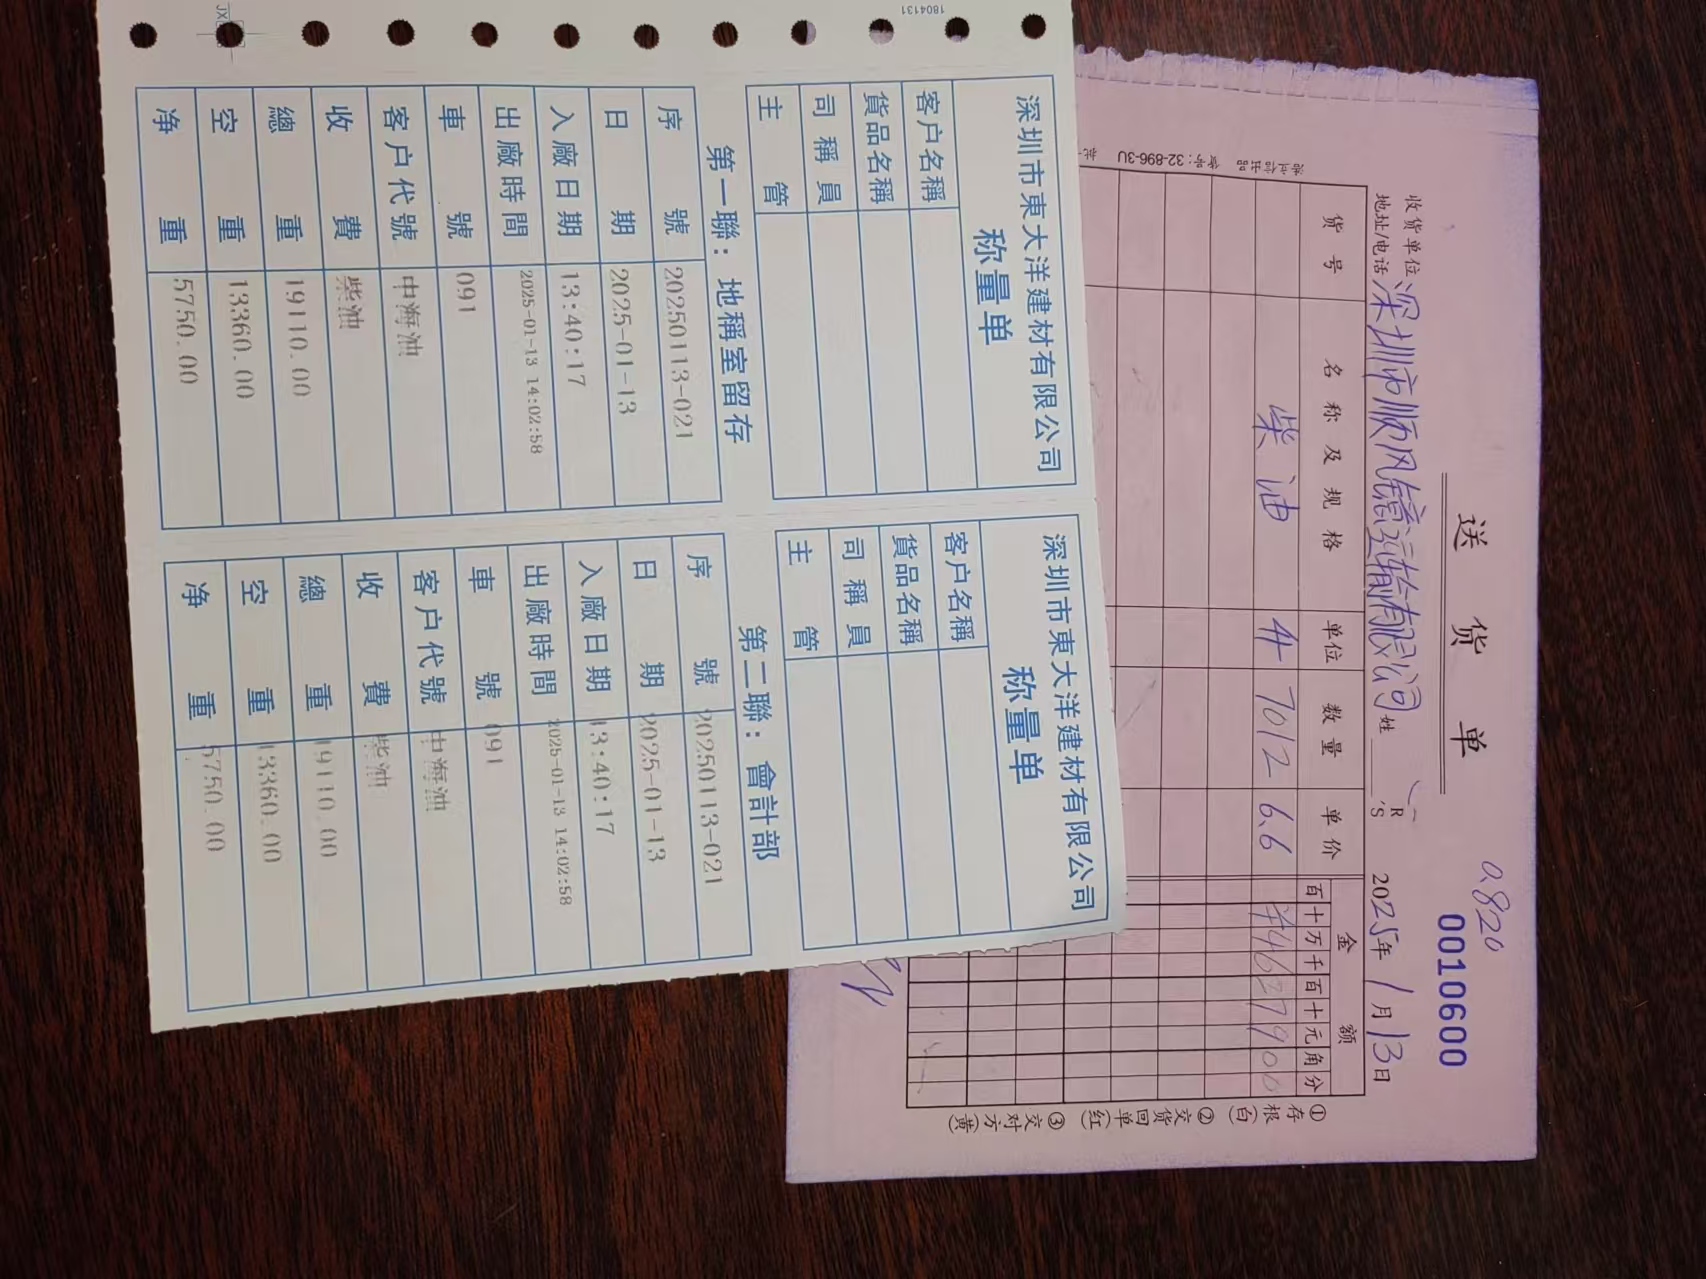 1804131
JX
深圳市東大洋建材有限公司
称量单
客户名稱
貨品名稱
司稱員
主管
第一聯：地稱室留存
序號 20250113-021
日期 2025-01-13
入廠日期 13:40:17
出廠時間 2025-01-13 14:02:58
車號 091
客户代號 中海油
收費 柴油
總重 19110.00
空重 13360.00
净重 5750.00
深圳市東大洋建材有限公司
称量单
客户名稱
貨品名稱
司稱員
主管
第二聯：會計部
序號 20250113-021
日期 2025-01-13
入廠日期 13:40:17
出廠時間 2025-01-13 14:02:58
車號 091
客户代號 中海油
收費 柴油
總重 19110.00
空重 13360.00
净重 5750.00
0.820
送货单 0010600
收货单位
地址/电话 深圳市顺风 运输有限公司 姓 R'S 2025年1月13日
货号 名称及规格 单位 数量 单价 金额
百十万千百十元角分
柴油 升 7012 6.6 ¥4627900
货号：32-896-3U
①存根（白） ②交货回单（红） ③交对方（黄）